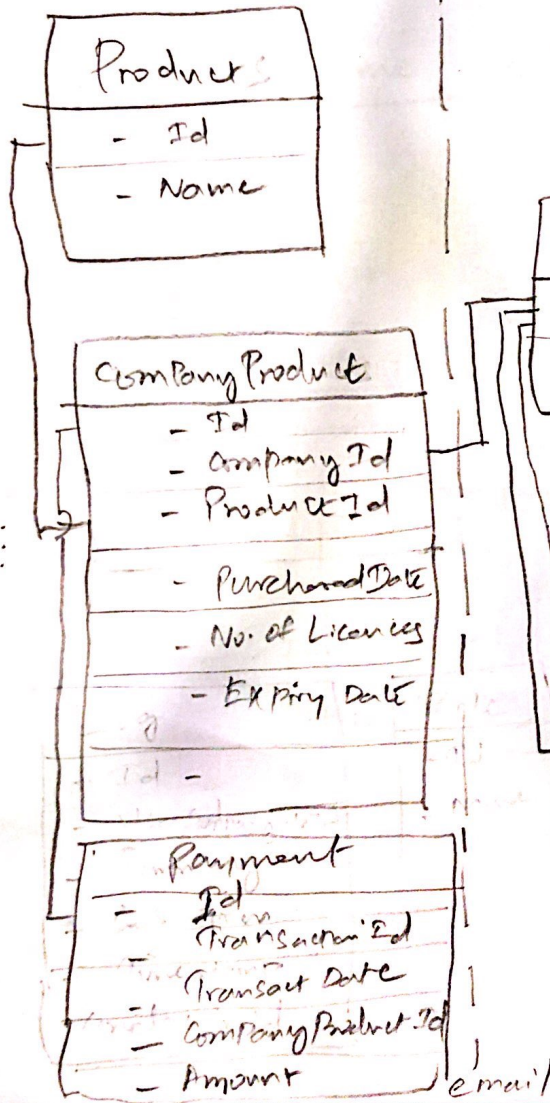 Products
- Id
- Name
Company Product
- Id
- Company Id
- Product Id
- Purchased Date
- No. of Licences
- Expiry Date
Payment
- Id
- Transaction Id
- Transact Date
- Company Product Id
- Amount
email